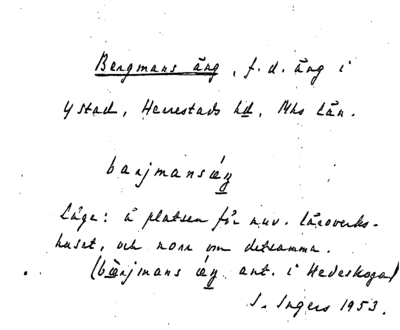 Bergmans äng, f.d. äng i
Ystad, Herrestads hd, Mhs län.
barjmansäŋ
Läge: å platsen för nuv. läroverks-
huset, och norr om detsamma.
(bærjmans äŋ ant. i Hedeskoga)
I. Ingers 1953.